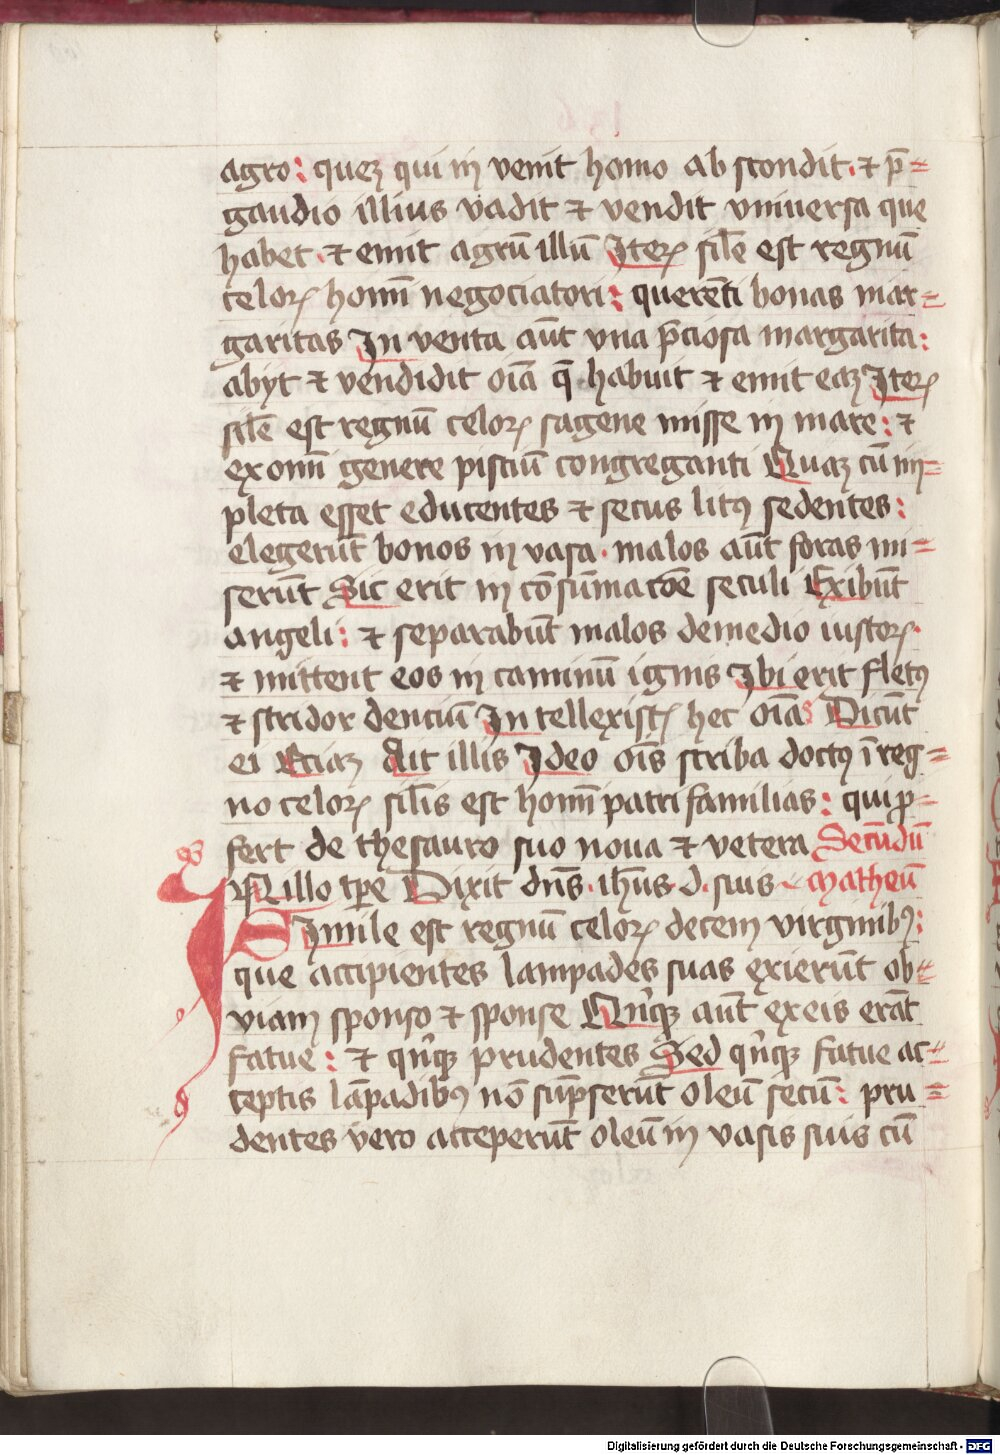 agro: quez qui in venit homo ab scondit. ⁊ p̄=
gaudio illius vadit ⁊ vendit vniuersa que
habet. ⁊ emit agrū illū Iteꝝ sil̄e est regnū
celoꝝ homī negociatori: querēti bonas mar=
garitas In venta aūt vna p̄ciosa margarita:
abyt ⁊ vendidit oīa q̄ habuit ⁊ emit eaz Iteꝝ
sil̄e est regnū celoꝝ sagene misse in mare: ⁊
ex omī genere pisciū congreganti Quaz cū im=
pleta esset educentes ⁊ secus litꝰ sedentes:
elegerūt bonos in vasa. malos aūt foras mi=
serūt Sic erit in cōsūmacōe seculi Exibūt
angeli: ⁊ separabūt malos de medio iustoꝝ.
⁊ mittent eos in caminū ignis Ibi erit fletꝰ
⁊ stridor denciū In tellexistꝭ hec oīa Dicūt
ei Eciaz Ait illis Ideo oīs scriba doctꝰ ī reg=
no celoꝝ sil̄is est homī patri familias: qui ꝓ=
fert de thesauro suo noua ⁊ vetera Secūdū
IN illo tꝑe Dixit dn̄s. ih̄us. d. suis Matheū
Simile est regnū celoꝝ decem virginibꝰ:
que accipientes lampades suas exierūt ob=
viam sponso ⁊ sponse Qn̄qꝫ aūt ex eis erāt
fatue: ⁊ qn̄qꝫ prudentes Sed qn̄qꝫ fatue ac=
ceptis lāpadibꝰ nō sūpserūt oleū secū: pru=
dentes vero acceperūt oleū in vasis suis cū
Digitalisierung gefördert durch die Deutsche Forschungsgemeinschaft - DFG